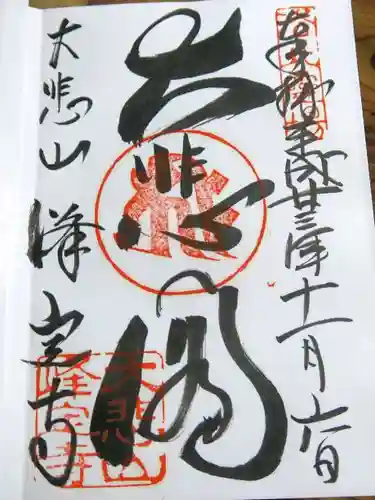 平成廿三年十一月六日
大悲閣
大悲山 峰定寺
大悲山
峰定寺